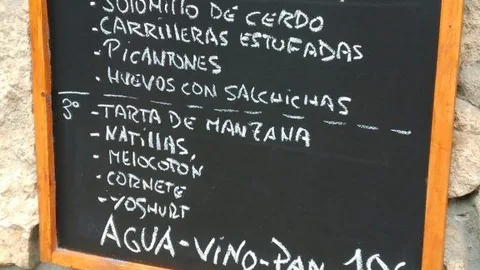 - SOLOMILLO DE CERDO
- CARRILLERAS ESTUFADAS
- PICANTONES
- HUEVOS CON SALCHICHAS
3º - TARTA DE MANZANA
- NATILLAS
- MELOCOTÓN
- CORNETE
- YOGHURT
AGUA - VINO - PAN